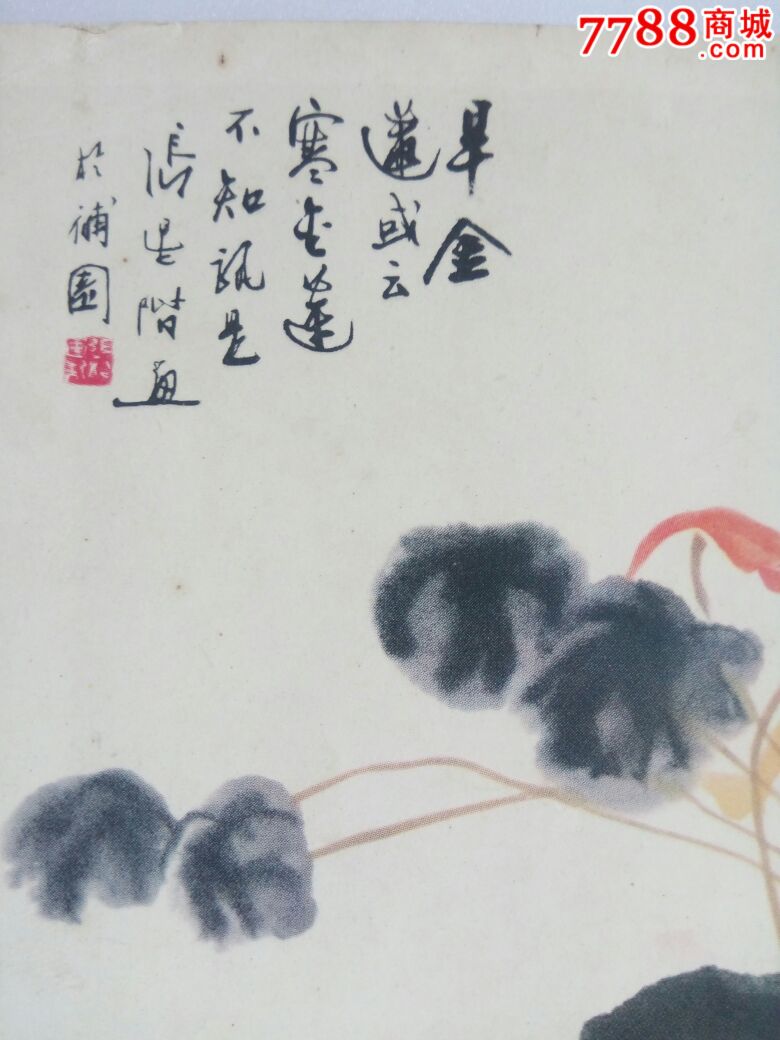 旱金
蓮或云
寒金蓮
不知孰是
張星階畫
於補園
7788商城
.com